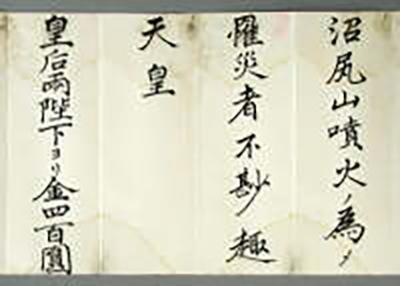 沼尻山噴火ノ為メ
罹災者不尠趣
天皇
皇后両陛下ヨリ金四百圓